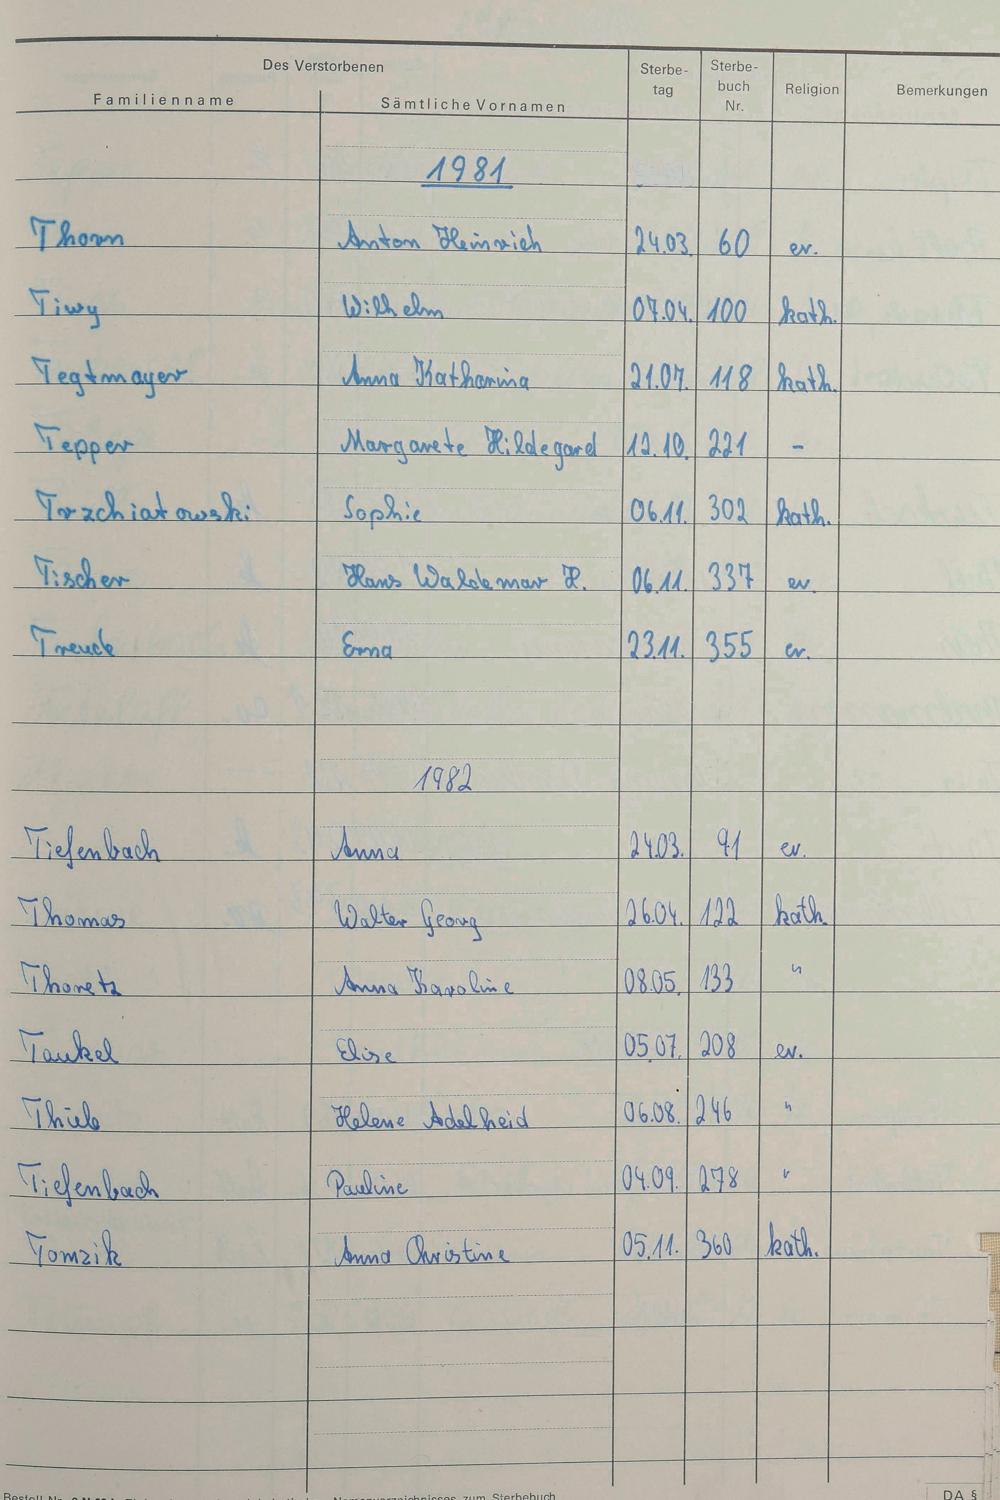 Des Verstorbenen
Familienname Sämtliche Vornamen Sterbe-tag Sterbe-buch Nr. Religion Bemerkungen
1981
Thorn Anton Heinrich 24.03. 60 ev.
Tiwy Wilhelm 07.04. 100 kath.
Tegtmayer Anna Katharina 21.07. 118 kath.
Tepper Margarete Hildegard 12.10. 221 -
Trzchiatowski Sophie 06.11. 302 kath.
Tischer Hans Waldemar H. 06.11. 337 ev.
Treuck Erna 23.11. 355 ev.
1982
Tiefenbach Anna 24.03. 91 ev.
Thomas Walter Georg 26.04. 122 kath.
Thoretz Anna Karoline 08.05. 133 "
Taukel Elise 05.07. 208 ev.
Thiele Helene Adelheid 06.08. 246 "
Tiefenbach Pauline 04.09. 278 "
Tomzik Anna Christine 05.11. 360 kath.
Namenverzeichnisses zum Sterbebuch
DA §